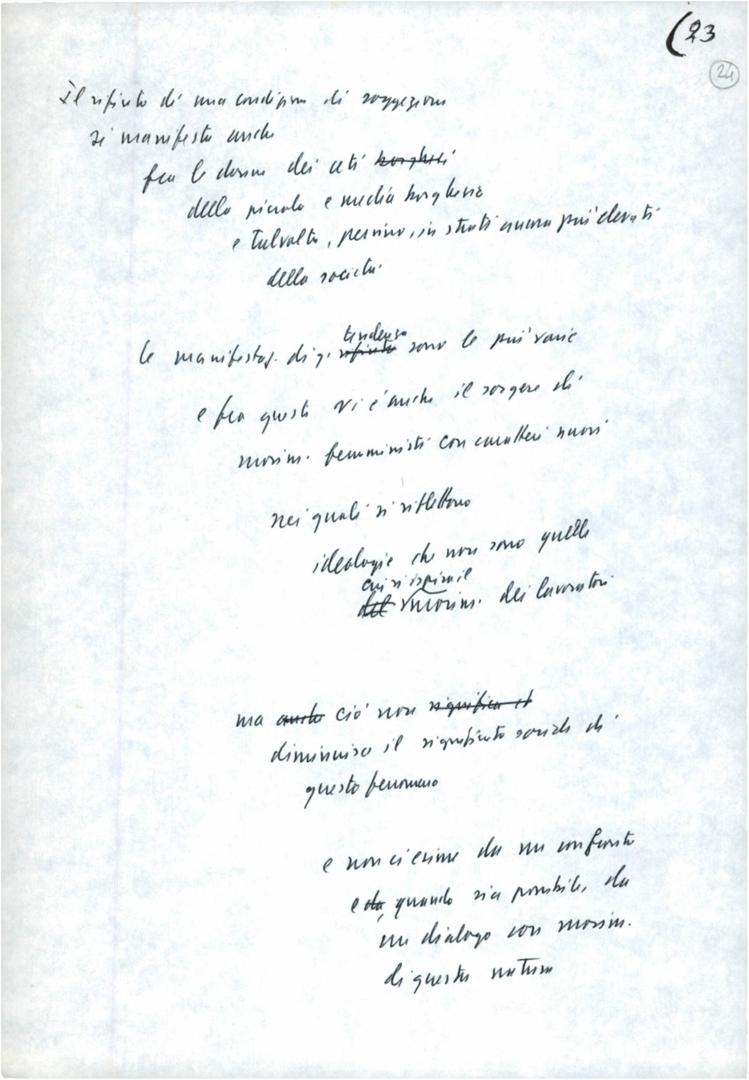 (23
24
Il rifiuto di una condizione di soggezione
si manifesta anche
fra le donne dei ceti borghesi
della piccola e media borghesia
e talvolta, persino, in strati ancora più elevati
della società
tendenza
le manifestaz. di q. rifiuto sono le più varie
e fra queste vi è anche il sorgere di
movim. femministi con caratteri nuovi
nei quali si riflettono
ideologie che non sono quelle
cui si ispira il
del movim. dei lavoratori
ma anche ciò non significa il
diminuisce il significato sociale di
questo fenomeno
e non ci esime da un confronto
e da, quando sia possibile, da
un dialogo con movim.
di questa natura